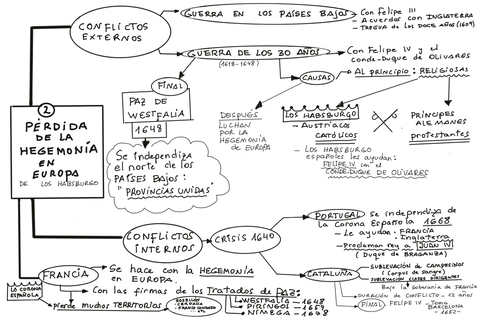 CONFLICTOS
EXTERNOS
GUERRA EN LOS PAÍSES BAJOS
Con Felipe III
- Acuerdos con INGLATERRA
- TREGUA DE LOS DOCE AÑOS (1609)
GUERRA DE LOS 30 AÑOS
(1618-1648)
Con Felipe IV y el
Conde-Duque de OLIVARES
CAUSAS
AL PRINCIPIO: RELIGIOSAS
FINAL
PAZ DE
WESTFALIA
1648
DESPUÉS
LUCHAN
POR LA
HEGEMONÍA
DE EUROPA
LOS HABSBURGO
- Austríacos
CATÓLICOS
- LOS HABSBURGO
españoles les ayudan:
FELIPE IV con el
CONDE-DUQUE DE OLIVARES
PRÍNCIPES
ALEMANES
protestantes
2
PÉRDIDA
DE LA
HEGEMONÍA
EN
EUROPA
DE LOS HABSBURGO
Se independiza
el norte de los
PAÍSES BAJOS:
"PROVINCIAS UNIDAS"
CONFLICTOS
INTERNOS
CRISIS 1640
PORTUGAL
Se independiza de
la Corona Española 1668
- Le ayudan: FRANCIA
Inglaterra
- Proclaman rey a JUAN IV
(Duque de BRAGANZA)
CATALUÑA
SUBLEVACIÓN DE CAMPESINOS
(Corpus de Sangre)
SUBLEVACIÓN CLASES DIRIGENTES
Bajo la soberanía de FRANCIA
DURACIÓN DE CONFLICTO - 12 AÑOS
FINAL
FELIPE IV toma
BARCELONA
- 1652 -
FRANCIA
Se hace con la HEGEMONÍA
EN EUROPA.
Con las firmas de los Tratados de PAZ:
WESTFALIA - 1648
PIRINEOS - 1659
NIMEGA - 1678
LA CORONA
ESPAÑOLA
pierde muchos TERRITORIOS
ROSELLÓN